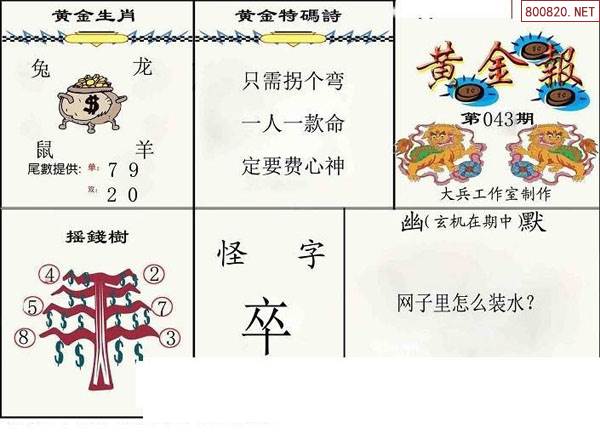 800820.NET
黄金生肖
兔 龙
$
鼠 羊
尾數提供: 单: 7 9
双: 2 0
黄金特碼詩
只需拐个弯
一人一款命
定要费心神
黄金報
第043期
大兵工作室制作
摇錢樹
④ ②
⑤ ⑦
⑧ ③
怪 字
卒
幽(玄机在期中)默
网子里怎么装水?